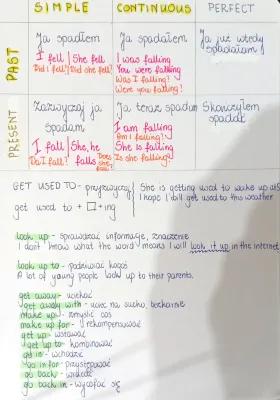 SIMPLE CONTINUOUS PERFECT
PAST
Ja spadłem
I fell She fell
Did I fell? Did she fell?
Ja spadałem
I was falling
You were falling
Was I falling?
Were you falling?
Ja już wtedy
spadałam
PRESENT
Zazwyczaj ja
spadam
I fall She, he
Do I fall? falls
Does she
Ja teraz spadam
I am falling
Am I falling?
She is falling
Is she falling?
Skończyłem
spadać
GET USED TO - przyzwyczaić
get used to + □ + ing
She is getting used to wake up at
I hope I will get used to this weather
look up - sprawdzać informacje, znaczenie
I don't know what the word means I will look it up in the internet
look up to - podziwiać kogoś
A lot of young people look up to their parents.
get away - uciekać
get away with - ujść na sucho, bezkarnie
make up - zmyślić coś
make up for - rekompensować
get up - wstawać
get up to - kombinować
get in - wchodzić
go in for - przystępować
go back - wrócić
go back in - wycofać się